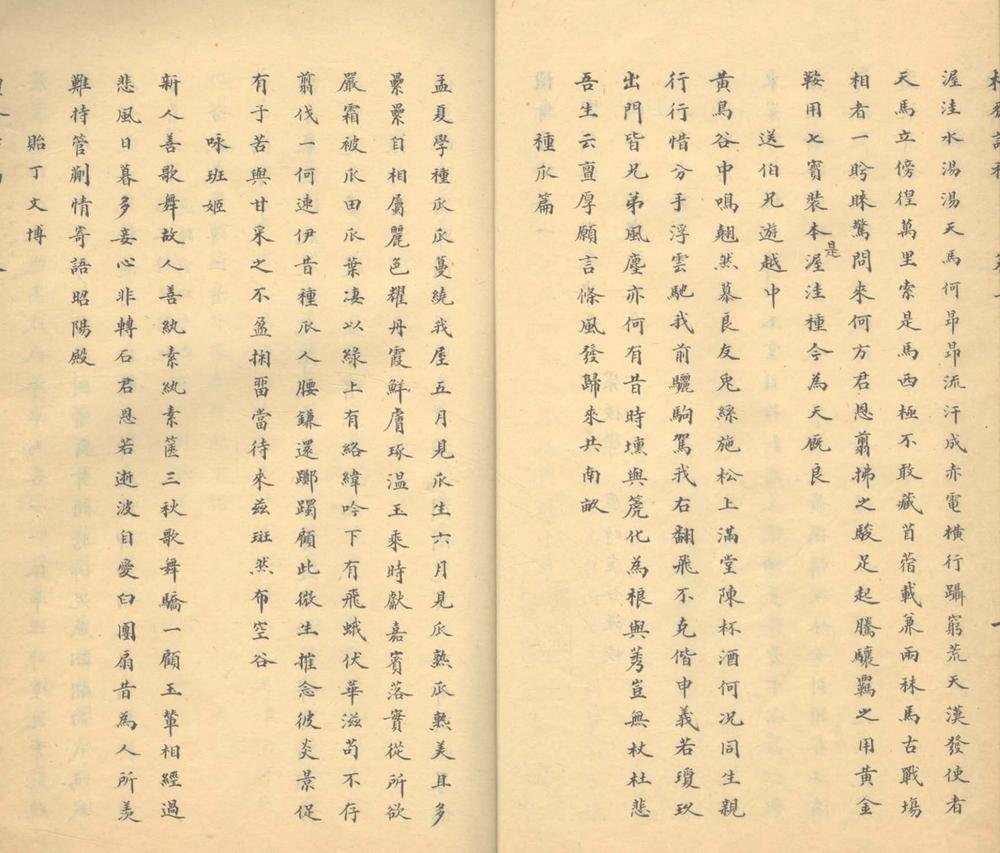 渥洼水湯湯天馬何昂昂流汗成赤電橫行躡窮荒天漢發使者
天馬立傍徨萬里索是馬西極不敢藏苜蓿載兼兩秣馬古戰塲
相者一盻睞驚問來何方君恩翦拂之駿足起騰驤羈之用黃金
鞍用七寶裝本是渥洼種今為天廐良
送伯兄遊越中
黃鳥谷中鳴翹然慕良友兎絲施松上滿堂陳杯酒何况同生親
行行惜分手浮雲馳我前驪駒駕我右翻飛不克偕申義若瓊玖
出門皆兄弟風塵亦何有昔時壎與箎化為根與莠豈無杕杜悲
吾生云亶厚願言條風發歸來共南畝
種瓜篇一
孟夏學種瓜瓜蔓繞我屋五月見瓜生六月見瓜熟瓜熟美且多
纍纍自相屬麗色耀丹霞鮮膚琢温玉乘時獻嘉賓落實從所欲
嚴霜被瓜田瓜葉凄以綠上有絡緯吟下有飛蛾伏華滋苟不存
翦伐一何速伊昔種瓜人腰鎌還躑躅顧此微生摧念彼炎景促
有子苦與甘采之不盈掬畱當待來兹斑然布空谷
咏班姬
新人善歌舞故人善紈素紈素篋三秋歌舞驕一顧玉輦相經過
悲風日暮多妾心非轉石君恩若逝波自愛白團扇昔為人所羙
難持管蒯情寄語昭陽殿
貽丁文博